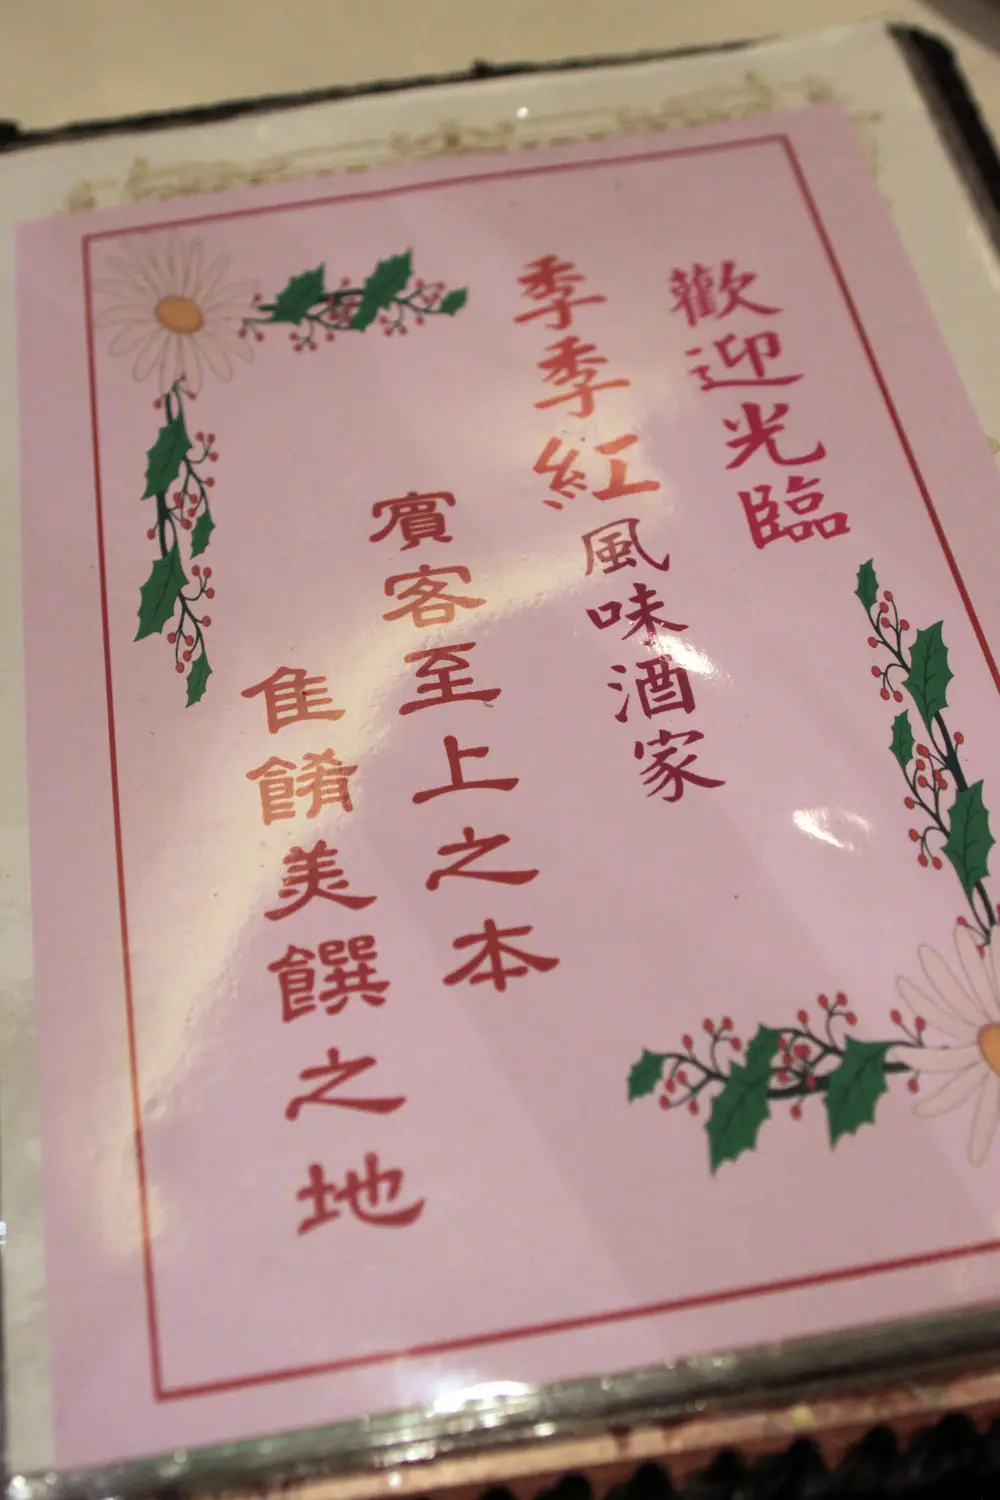 歡迎光臨
季季紅風味酒家
賓客至上之本
隹餚美饌之地